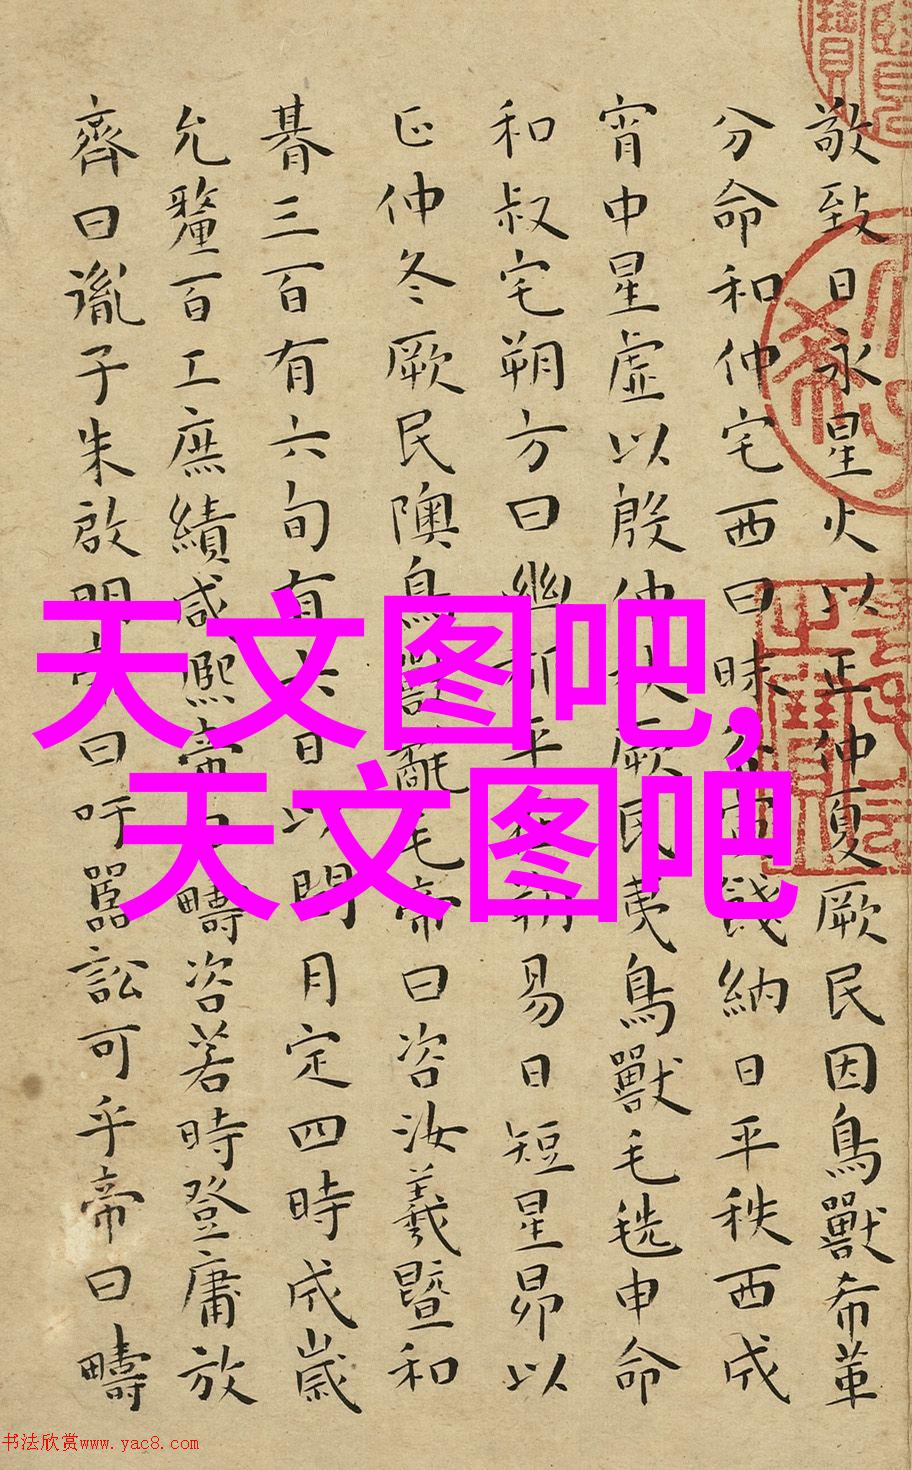 敬致日永星火以正仲夏厥民因鳥獸希革
分命和仲宅西曰昧谷寅餞納日平秩西成
宵中星虛以殷仲秋厥民夷鳥獸毛毨申命
和叔宅朔方曰幽平在朔易日短星昴以
正仲冬厥民隩鳥獸氄毛帝曰咨汝羲暨和
朞三百有六旬有六日以閏月定四時成歲
允釐百工庶績咸熙帝曰疇咨若時登庸放
齊曰胤子朱啟明帝曰吁嚚訟可乎帝曰疇
天文图吧,
天文图吧
书法欣赏www.yac8.com